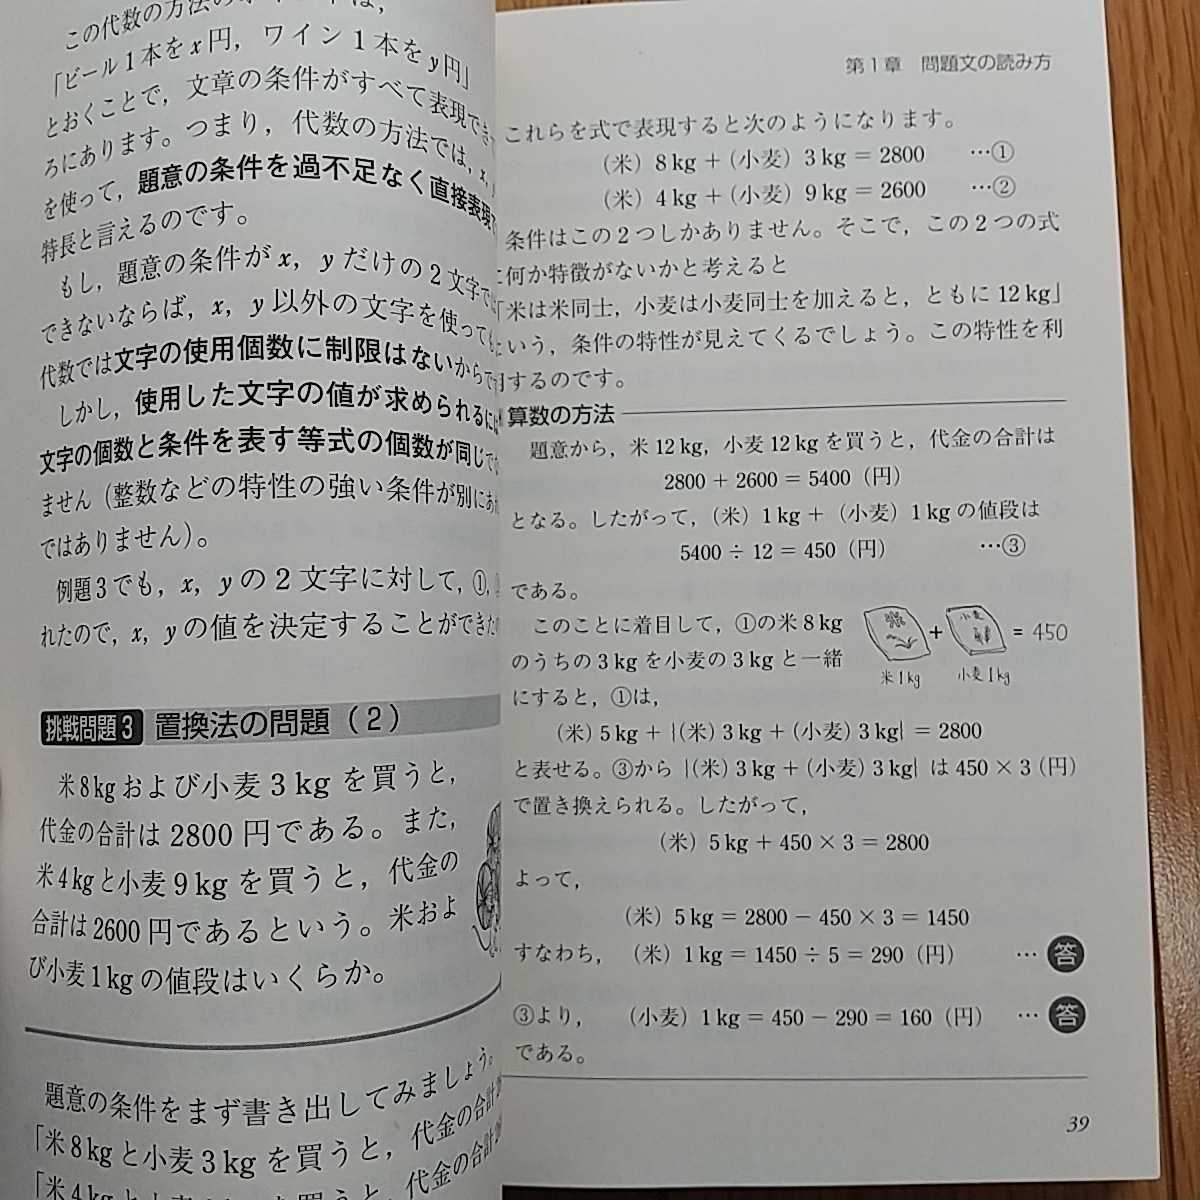 この代数の方法の
「ビール1本をx円，ワイン1本をy円」
とおくことで，文章の条件がすべて表現でき
ろにあります。つまり，代数の方法では，x，
を使って，題意の条件を過不足なく直接表現
特長と言えるのです。
もし，題意の条件がx，yだけの2文字で
できないならば，x，y以外の文字を使っても
代数では文字の使用個数に制限はないからで
しかし，使用した文字の値が求められるには
文字の個数と条件を表す等式の個数が同じで
ません（整数などの特性の強い条件が別にあれ
ではありません）。
例題3でも，x，yの2文字に対して，①，
れたので，x，yの値を決定することができた
挑戦問題3 置換法の問題（2）
米8kgおよび小麦3kgを買うと，
代金の合計は2800円である。また，
米4kgと小麦9kgを買うと，代金の
合計は2600円であるという。米およ
び小麦1kgの値段はいくらか。
題意の条件をまず書き出してみましょう。
「米8kgと小麦3kgを買うと，代金の合計
「米4kgと小麦9kgを買うと，代金の合計
第1章 問題文の読み方
これらを式で表現すると次のようになります。
（米）8kg＋（小麦）3kg＝2800 …①
（米）4kg＋（小麦）9kg＝2600 …②
条件はこの2つしかありません。そこで，この2つの式
に何か特徴がないかと考えると
「米は米同士，小麦は小麦同士を加えると，ともに12kg」
という，条件の特性が見えてくるでしょう。この特性を利
用するのです。
算数の方法
題意から，米12kg，小麦12kgを買うと，代金の合計は
2800＋2600＝5400（円）
となる。したがって，（米）1kg＋（小麦）1kgの値段は
5400÷12＝450（円） …③
である。
このことに着目して，①の米8kg
のうちの3kgを小麦の3kgと一緒
にすると，①は，
小麦
＋ ＝450
米1kg 小麦1kg
（米）5kg＋{（米）3kg＋（小麦）3kg}＝2800
と表せる。③から{（米）3kg＋（小麦）3kg}は450×3（円）
で置き換えられる。したがって，
（米）5kg＋450×3＝2800
よって，
（米）5kg＝2800－450×3＝1450
すなわち，（米）1kg＝1450÷5＝290（円） …答
③より，（小麦）1kg＝450－290＝160（円） …答
である。
39